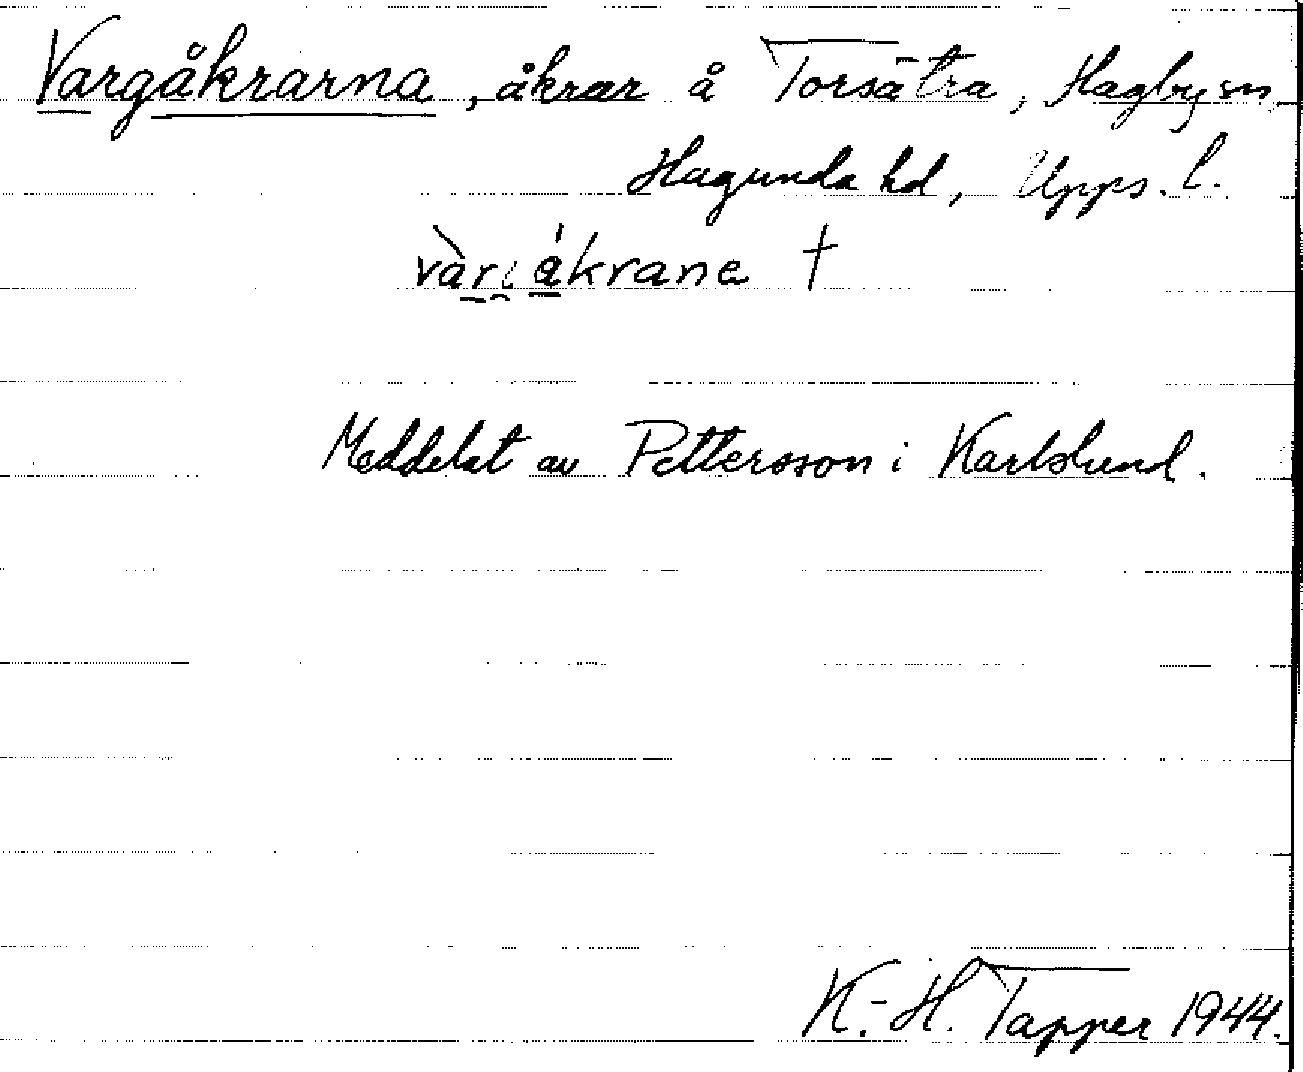 Vargåkrarna, åkrar å Torsätra, Hagby sn,
Hagunda hd, Upps. l.
vàri̯ åkrane †
Meddelat av Pettersson i Karlslund.
K.-H. Tapper 1944.